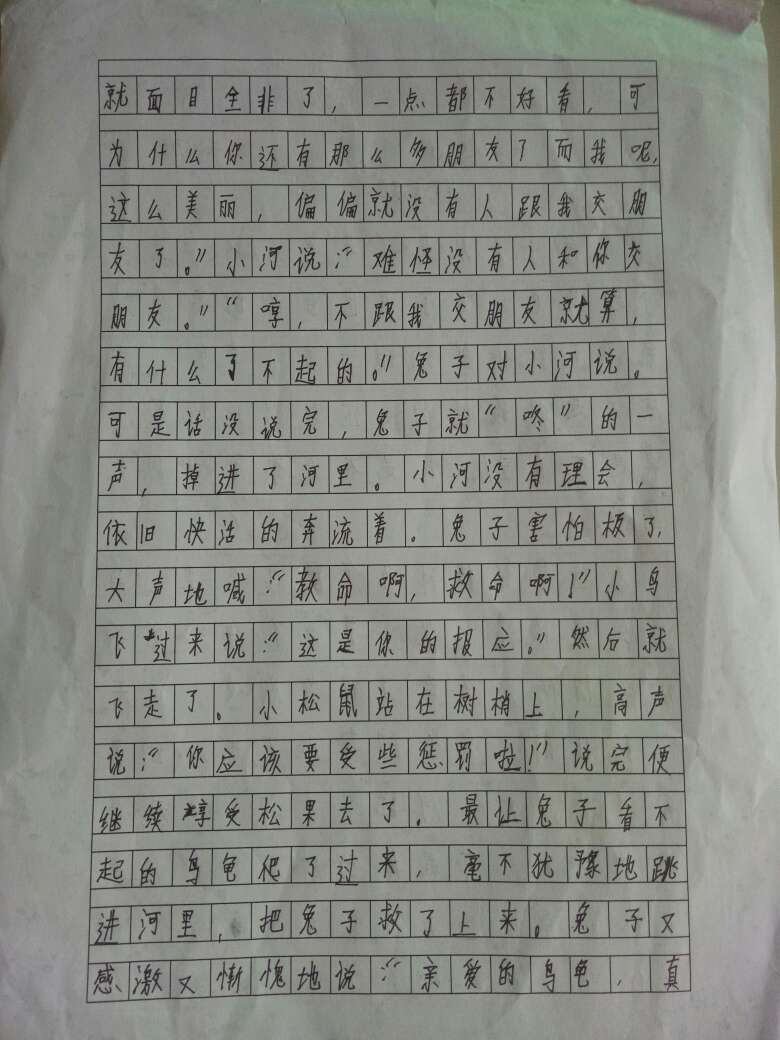 就面目全非了，一点都不好看，可
为什么你还有那么多朋友了而我呢，
这么美丽，偏偏就没有人跟我交朋
友了。”小河说：“难怪没有人和你交
朋友。”“哼，不跟我交朋友就算，
有什么了不起的。”兔子对小河说。
可是话没说完，兔子就“咚”的一
声，掉进了河里。小河没有理会，
依旧快活的奔流着。兔子害怕极了，
大声地喊：“救命啊，救命啊！”小鸟
飞过来说：“这是你的报应。”然后就
飞走了。小松鼠站在树梢上，高声
说：“你应该要受些惩罚啦！”说完便
继续享受松果去了。最让兔子看不
起的乌龟爬了过来，毫不犹豫地跳
进河里，把兔子救了上来。兔子又
感激又惭愧地说：“亲爱的乌龟，真